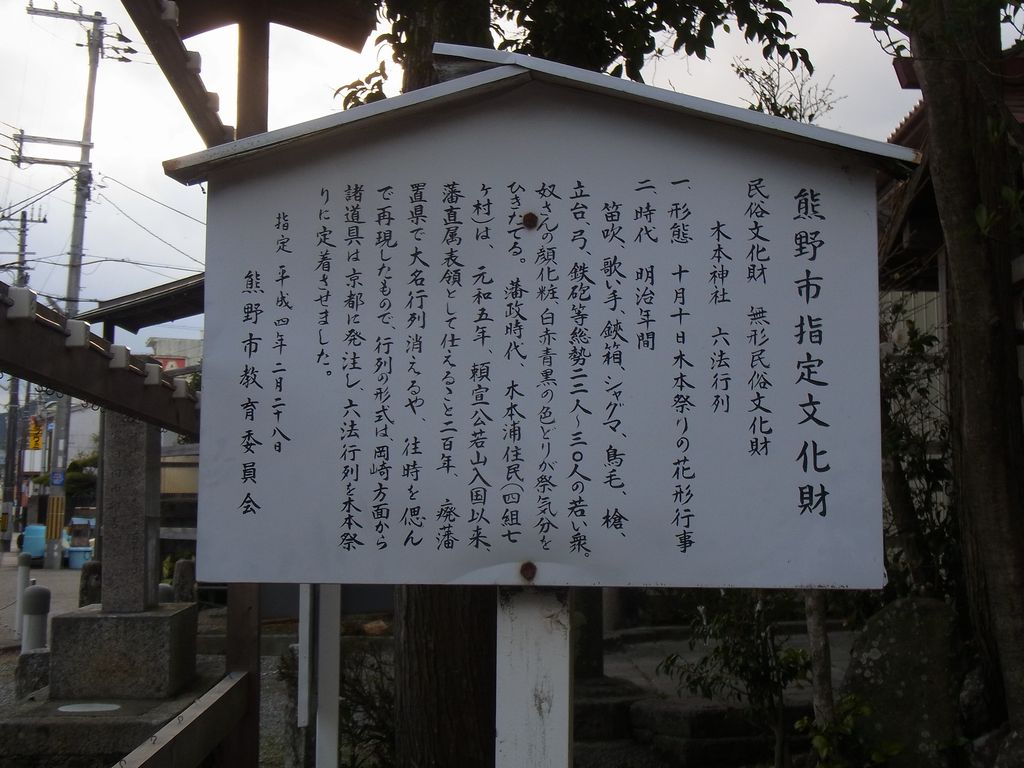 熊野市指定文化財
民俗文化財　無形民俗文化財
木本神社　六法行列
一、形態　十月十日木本祭りの花形行事
二、時代　明治年間
笛吹、歌い手、鋏箱、シャグマ、鳥毛、槍、
立台弓、鉄砲等総勢二二人～三〇人の若い衆。
奴さんの顔化粧、白赤青黒の色どりが祭気分を
ひきたてる。　藩政時代、木本浦住民（四組七
ヶ村）は、元和五年、頼宣公若山入国以来、
藩直属表領として仕えること二百年、廃藩
置県で大名行列消えるや、往時を偲ん
で再現したもので、行列の形式は岡崎方面から
諸道具は京都に発注し、六法行列を木本祭
りに定着させました。
指定　平成四年二月二十八日
熊野市教育委員会